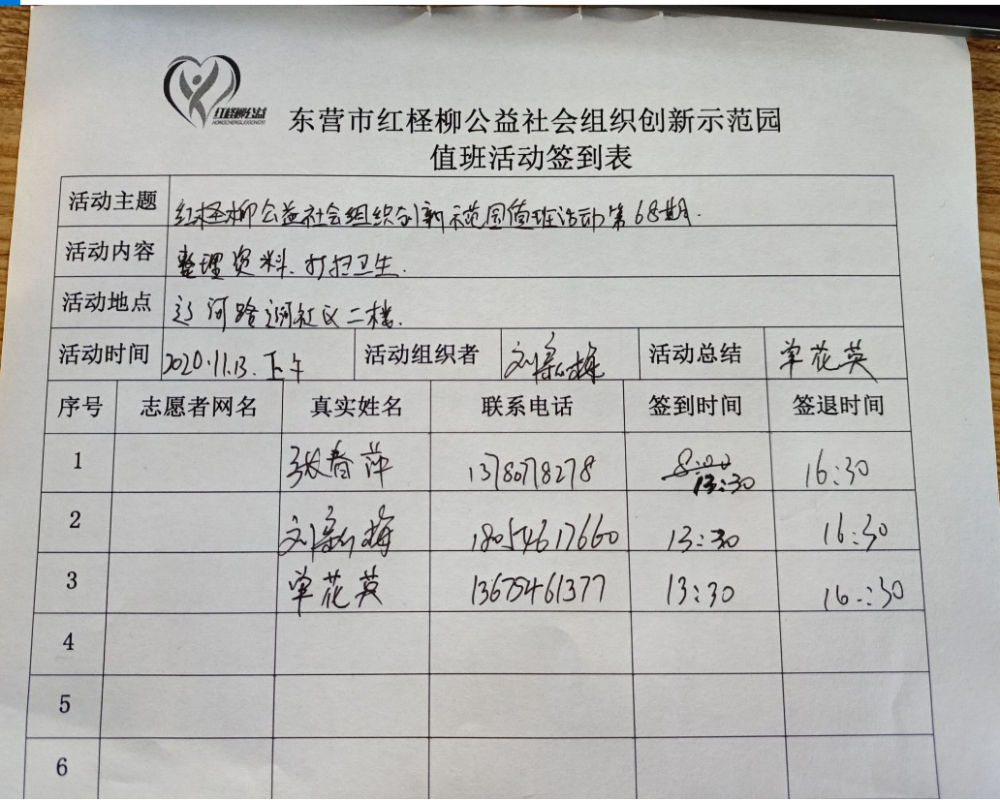 红柽柳公益
HONGCHENGLIUGONGYI
东营市红柽柳公益社会组织创新示范园
值班活动签到表
活动主题 红柽柳公益社会组织创新示范园值班活动第68期.
活动内容 整理资料.打扫卫生.
活动地点 辽河路辽河社区二楼.
活动时间 2020.11.13.下午 活动组织者 刘新梅 活动总结 单花英
序号 志愿者网名 真实姓名 联系电话 签到时间 签退时间
1 张春萍 1378078278 8:00 13:30 16:30
2 刘新梅 18054617660 13:30 16:30
3 单花英 13675461377 13:30 16:30
4
5
6